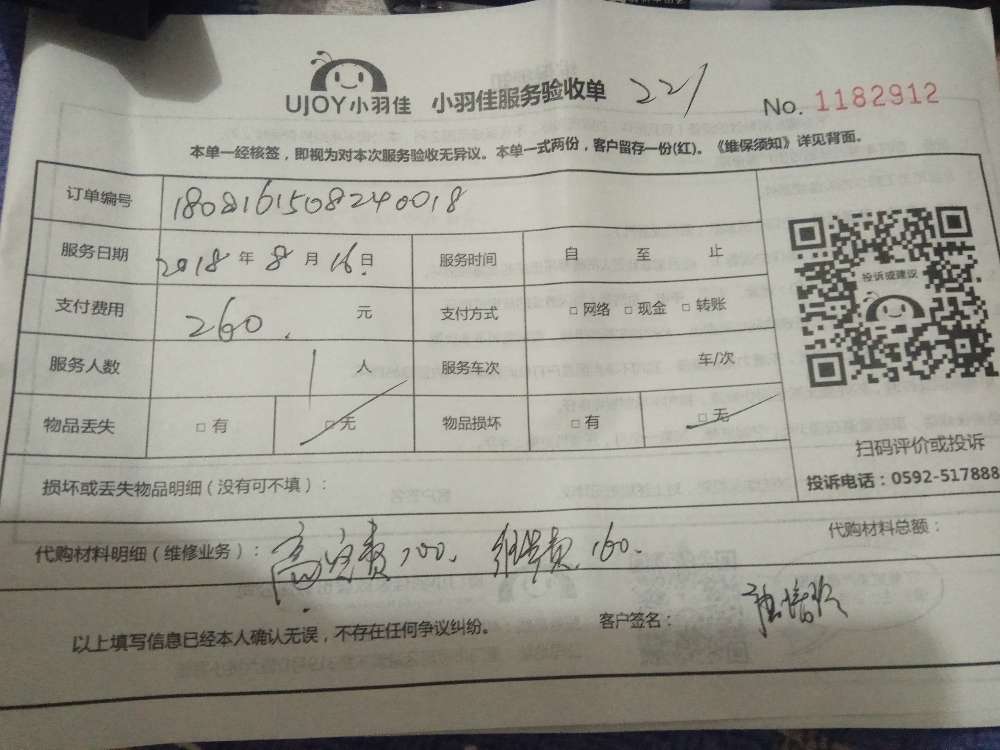 UJOY小羽佳 小羽佳服务验收单 221 No. 1182912
本单一经核签，即视为对本次服务验收无异议。本单一式两份，客户留存一份(红)。《维保须知》详见背面。
订单编号 1808161508240018
服务日期 2018 年 8 月 16 日 服务时间 自 至 止
投诉或建议
支付费用 260. 元 支付方式 □ 网络 □ 现金 □ 转账
服务人数 1 人 服务车次 车/次
物品丢失 □ 有 □ 无 物品损坏 □ 有 □ 无
扫码评价或投诉
损坏或丢失物品明细（没有可不填）：
投诉电话：0592-517888
代购材料明细（维修业务）：高空费100. 维修费160.
代购材料总额：
以上填写信息已经本人确认无误，不存在任何争议纠纷。 客户签名：